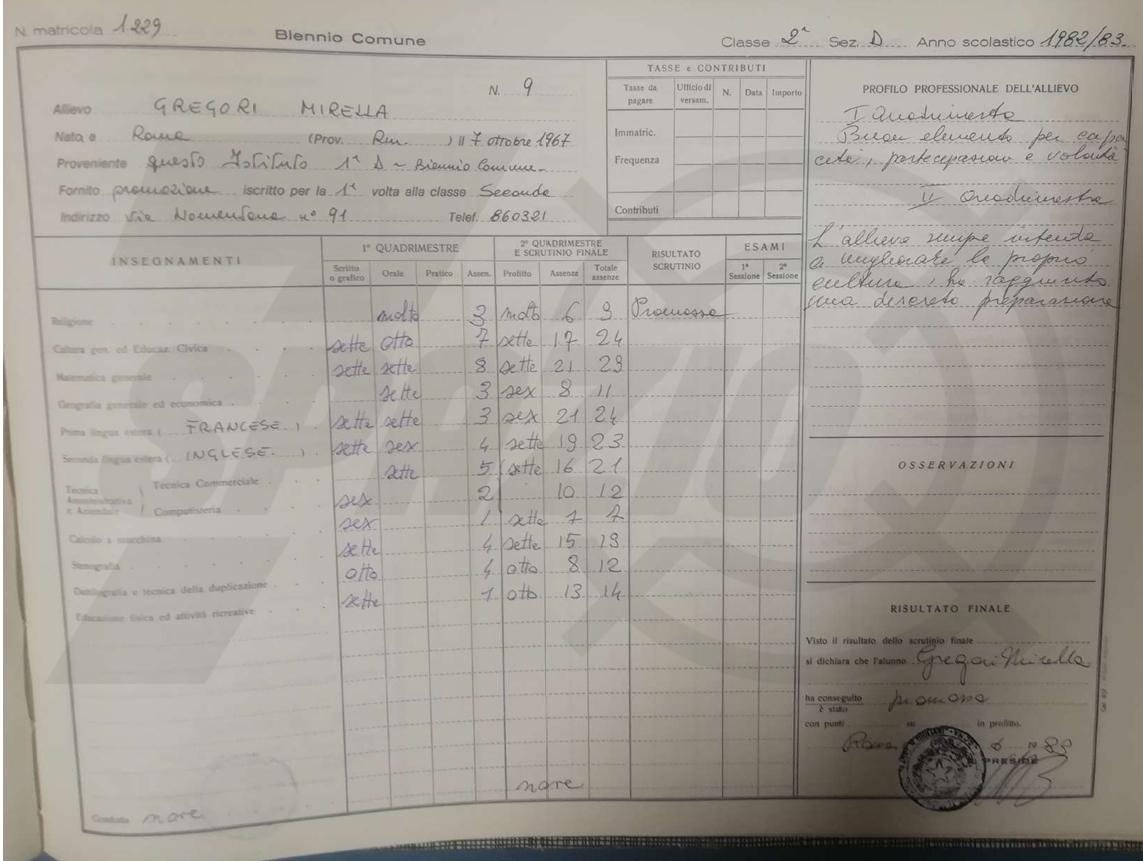 N. matricola 1229 Biennio Comune Classe 2ª Sez. D Anno scolastico 1982/83
N. 9
Allievo GREGORI MIRELLA
Nata a Roma (Prov. Rm) il 7 ottobre 1967
Proveniente questo Istituto 1ª D - Biennio Comune
Fornito promozione iscritto per la 1ª volta alla classe Seconda
Indirizzo Via Nomentana nº 91 Telef. 860321
TASSE e CONTRIBUTI
Tasse da pagare Ufficio di versam. N. Data Importo
Immatric.
Frequenza
Contributi
PROFILO PROFESSIONALE DELL'ALLIEVO
I Quadrimestre
Buon elemento per capa
cità, partecipazione e volontà
II Quadrimestre
L'allieva sempre intenta
a migliorare la propria
cultura, ha raggiunto
una discreta preparazione
INSEGNAMENTI 1º QUADRIMESTRE 2º QUADRIMESTRE E SCRUTINIO FINALE RISULTATO SCRUTINIO ESAMI
Scritto o grafico Orale Pratico Assen. Profitto Assenze Totale assenze 1ª Sessione 2ª Sessione
Religione molto 3 molto 6 9 Promossa
Cultura gen. ed Educaz. Civica sette otto 7 sette 17 24
Matematica generale sette sette 8 sette 21 29
Geografia generale ed economica sette 3 sex 8 11
Prima lingua estera (FRANCESE) sette sette 3 sex 21 24
Seconda lingua estera (INGLESE) sette sex 4 sette 19 23
Tecnica Amministrativa e Aziendale
Tecnica Commerciale sette 5 sette 16 21
Computisteria sex 2 10 12
Calcolo a macchina sex 1 sette 7 7
Stenografia sette 4 sette 15 19
Dattilografia e tecnica della duplicazione otto 4 otto 8 12
Educazione fisica ed attività ricreative sette 1 otto 13 14
Condotta nove nove
OSSERVAZIONI
RISULTATO FINALE
Visto il risultato dello scrutinio finale
si dichiara che l'alunno Gregori Mirella
ha conseguito
è stato promossa
con punti su in profitto.
Roma 6 19 83
PRESIDE
SPAZIO